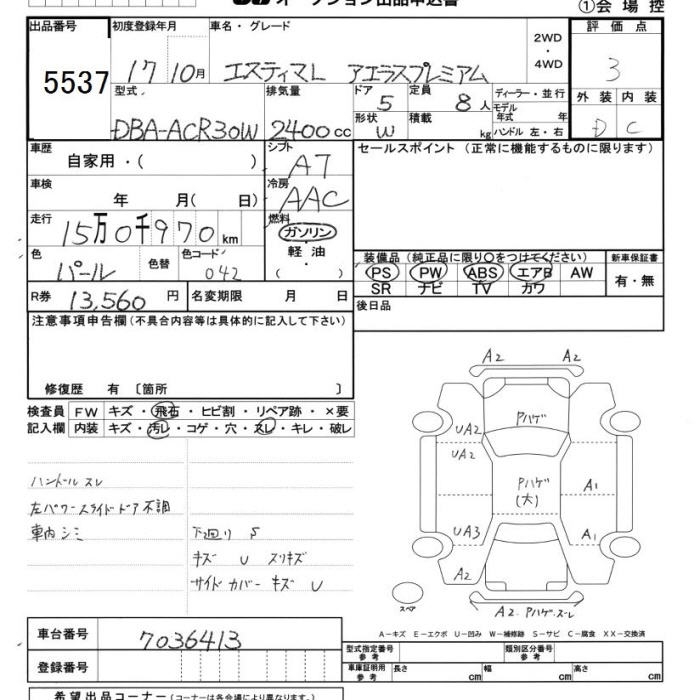 オークション出品申込書
①会場控
出品番号 初度登録年月 車名・グレード 2WD・4WD 評価点
5537 17 10月 エスティマL アエラスプレミアム 3
型式 排気量 ドア 定員 ディーラー・並行 外装 内装
DBA-ACR30W 2400cc 5 8人 モデル年式 年 D C
形状 積載
W kg ハンドル 左・右
車歴 シフト セールスポイント（正常に機能するものに限ります）
自家用・（ ） AT
車検 冷房
年 月（ 日） AAC
走行 燃料
15万0千970km ガソリン・軽油・（ ）
色 色替 色コード 装備品（純正品に限り○をつけてください） 新車保証書
パール 042 PS PW ABS エアB AW 有・無
SR ナビ TV カワ
R券 13,560円 名変期限 月 日 後日品
注意事項申告欄（不具合内容等は具体的に記入して下さい）
修復歴 有〔箇所 〕
検査員 FW キズ・飛石・ヒビ割・リペア跡・×要
記入欄 内装 キズ・汚レ・コゲ・穴・スレ・キレ・破レ
ハンドル スレ
左パワースライドドア不調
車内シミ
下廻り S
キズ U スリキズ
サイドカバー キズ U
A2 A2
Pハゲ
UA2
UA2
Pハゲ
(大)
A1
UA3 A1
A2
スペア
A2 Pハゲ・スレ
A－キズ E－エクボ U－凹み W－補修跡 S－サビ C－腐食 XX－交換済
車台番号 7036413
型式指定番号 参考 類別区分番号 参考
登録番号
車庫証明用 参考 長さ cm 幅 cm 高さ cm
希望出品コーナー（コーナーは各会場により異なります。）